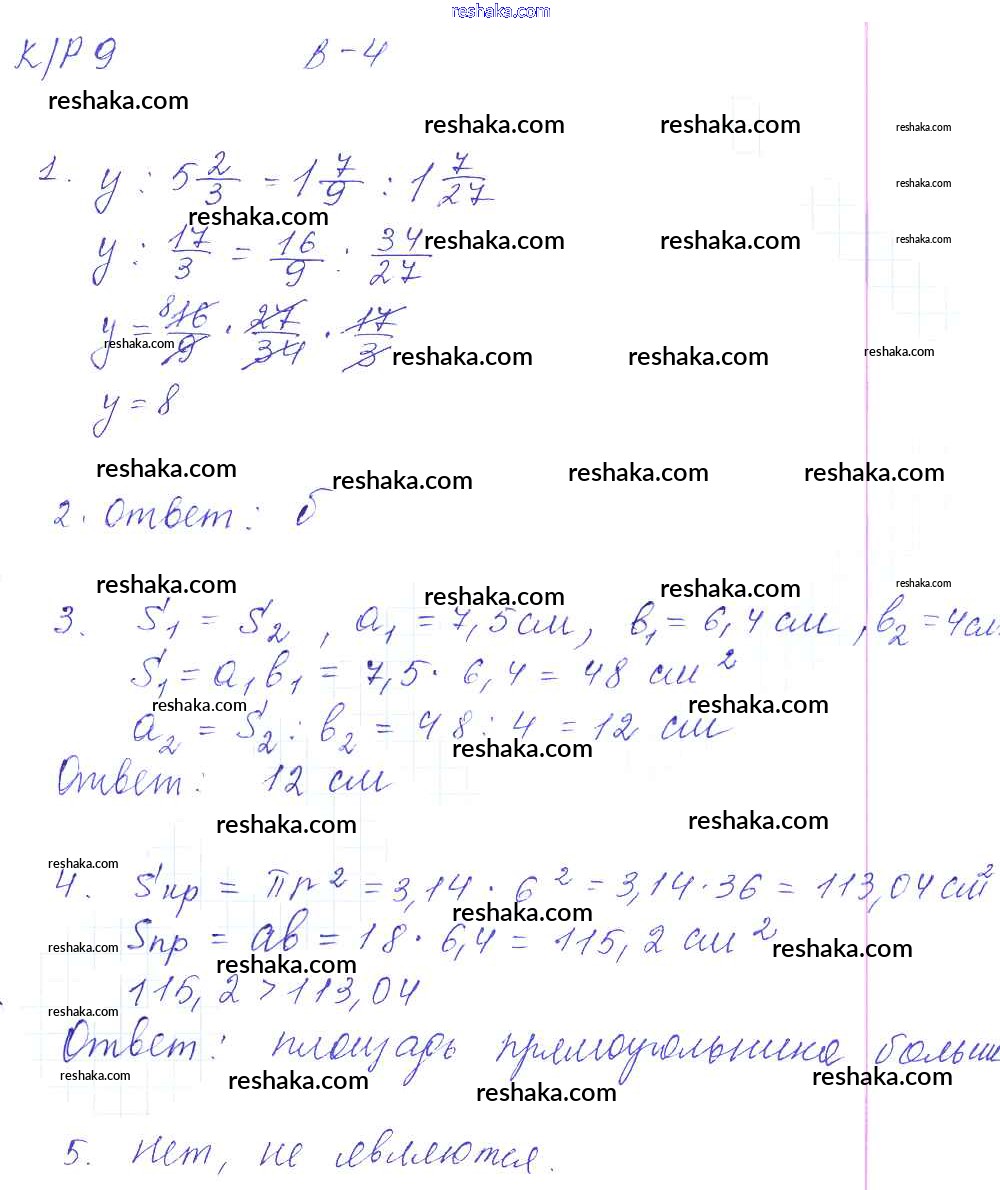 reshaka.com
К/Р 9 В-4
reshaka.com
reshaka.com reshaka.com reshaka.com
1. y : 5 2/3 = 1 7/9 : 1 7/27
reshaka.com
reshaka.com
y : 17/3 = 16/9 : 34/27
reshaka.com reshaka.com reshaka.com
y = 8 16/9 · 27/34 · 17/3
reshaka.com reshaka.com reshaka.com reshaka.com
y = 8
reshaka.com reshaka.com reshaka.com reshaka.com
2. Ответ: б
reshaka.com reshaka.com reshaka.com reshaka.com
3. S1 = S2, a1 = 7,5 см, в1 = 6,4 см, в2 = 4см
S1 = a1 в1 = 7,5 · 6,4 = 48 см²
reshaka.com reshaka.com
a2 = S2 : в2 = 48 : 4 = 12 см
reshaka.com
Ответ: 12 см
reshaka.com reshaka.com
reshaka.com
4. Sкр = πr² = 3,14 · 6² = 3,14 · 36 = 113,04 см²
reshaka.com
Sпр = aв = 18 · 6,4 = 115,2 см²
reshaka.com reshaka.com
reshaka.com
115,2 > 113,04
reshaka.com
Ответ: площадь прямоугольника больш
reshaka.com reshaka.com reshaka.com reshaka.com
5. Нет, не являются.